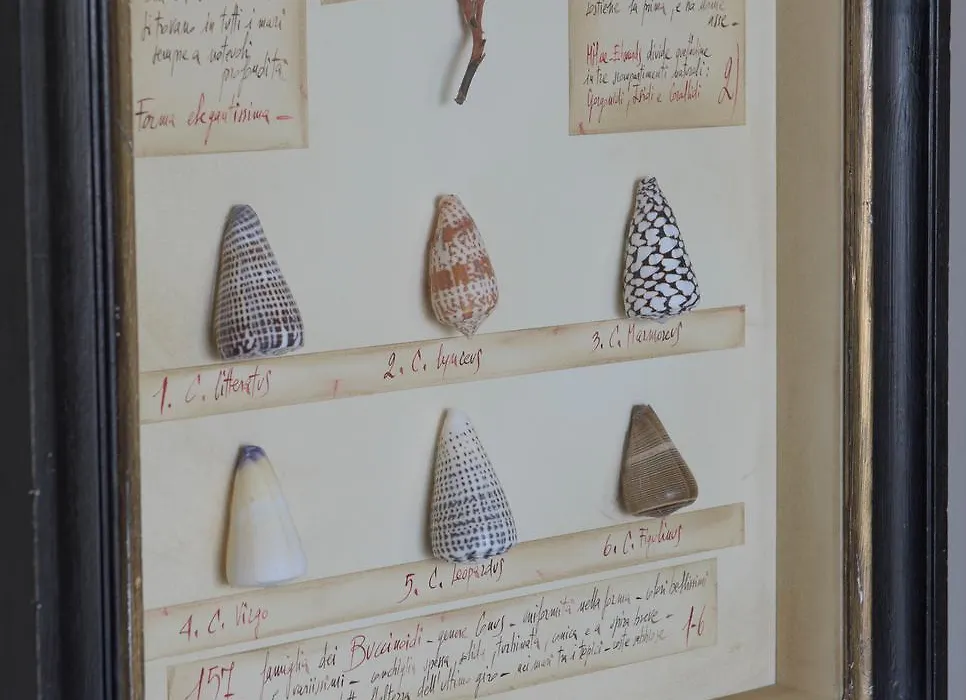 si trovano in tutti i mari
sempre a notevoli
profondità
Forma elegantissima —
sostiene la prima, e ha nome
asse —
Milne-Edwards divide quest'ordine
in tre scompartimenti naturali:
Gorgonidi, Isidi e Corallidi
2)
1. C. litteratus
2. C. lynceus
3. C. Marmoreus
4. C. Virgo
5. C. Leopardus
6. C. Figulinus
157 famiglia dei Buccinoidi — genere Conus — uniformità nella forma — colori bellissimi
e variissimi — conchiglia spessa, solida, conica e a spira breve —
dell'ultimo giro — nei mari tra i tropici — coste sabbiose
1-6